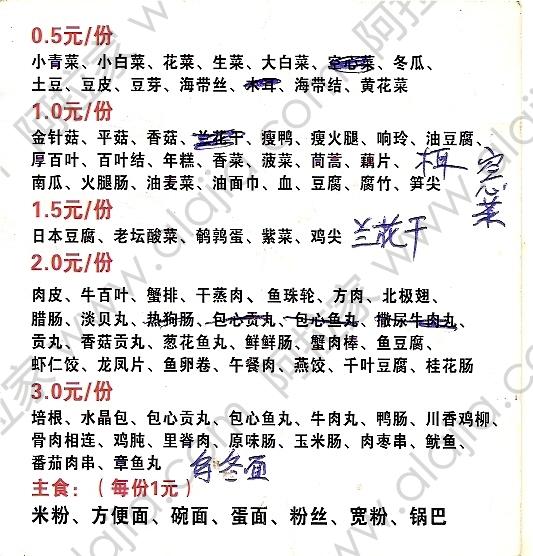 0.5元/份
小青菜、小白菜、花菜、生菜、大白菜、空心菜、冬瓜、
土豆、豆皮、豆芽、海带丝、木耳、海带结、黄花菜
1.0元/份
金针菇、平菇、香菇、兰花干、瘦鸭、瘦火腿、响玲、油豆腐、
厚百叶、百叶结、年糕、香菜、菠菜、茼蒿、藕片、
南瓜、火腿肠、油麦菜、油面巾、血、豆腐、腐竹、笋尖
空心菜
1.5元/份
日本豆腐、老坛酸菜、鹌鹑蛋、紫菜、鸡尖 兰花干
2.0元/份
肉皮、牛百叶、蟹排、干蒸肉、鱼珠轮、方肉、北极翅、
腊肠、淡贝丸、热狗肠、包心贡丸、包心鱼丸、撒尿牛肉丸、
贡丸、香菇贡丸、葱花鱼丸、鲜鲜肠、蟹肉棒、鱼豆腐、
虾仁饺、龙凤片、鱼卵卷、午餐肉、燕饺、千叶豆腐、桂花肠
3.0元/份
培根、水晶包、包心贡丸、包心鱼丸、牛肉丸、鸭肠、川香鸡柳、
骨肉相连、鸡肫、里脊肉、原味肠、玉米肠、肉枣串、鱿鱼、
番茄肉串、章鱼丸
乌冬面
主食：（每份1元）
米粉、方便面、碗面、蛋面、粉丝、宽粉、锅巴
阿拉家 www.alajia.com